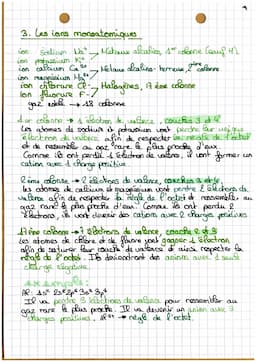 3. Les ions monoatomiques
ion sodium Na⁺ → Métaux alcalins, 1ère colonne (sauf H)
ion potassium K⁺
ion calcium Ca²⁺ → Métaux alcalino-terreux, 2ème colonne
ion magnésium Mg²⁺
ion chlorure Cl⁻ → Halogènes, 17 ème colonne
ion fluorure F⁻
gaz noble → 18 colonne
1ère colonne → 1 électron de valence, couches 3 et 4
Les atomes de sodium et potassium vont perdre leur unique
électron de valence afin de respecter la règle de l'octet
et de ressembler au gaz rare le plus proche d'eux.
Comme ils ont perdu 1 électron de valence, ils vont former un
cation avec 1 charge positive
2ème colonne → 2 électrons de valence, couches 3 et 4
les atomes de calcium et magnésium vont perdre 2 électrons de
valence afin de respecter la règle de l'octet et ressembler au
gaz rare le plus proche d'eux. Comme ils ont perdu 2
électrons, ils vont devenir des cations avec 2 charges positives
17ème colonne → 7 électrons de valence, couche 2 et 3
Les atomes de chlore et de fluor vont gagner 1 électron
afin de saturer leur couche de valence et ainsi respecter la
règle de l'octet. Ils deviendront des anions avec 1 seule
charge négative.
Exemple :
Al : 1s² 2s² 2p⁶ 3s² 3p¹
Il va perdre 3 électrons de valence pour ressembler au
gaz rare le plus proche. Il va devenir un cation avec 3
charges positives, Al³⁺ → règle de l'octet.